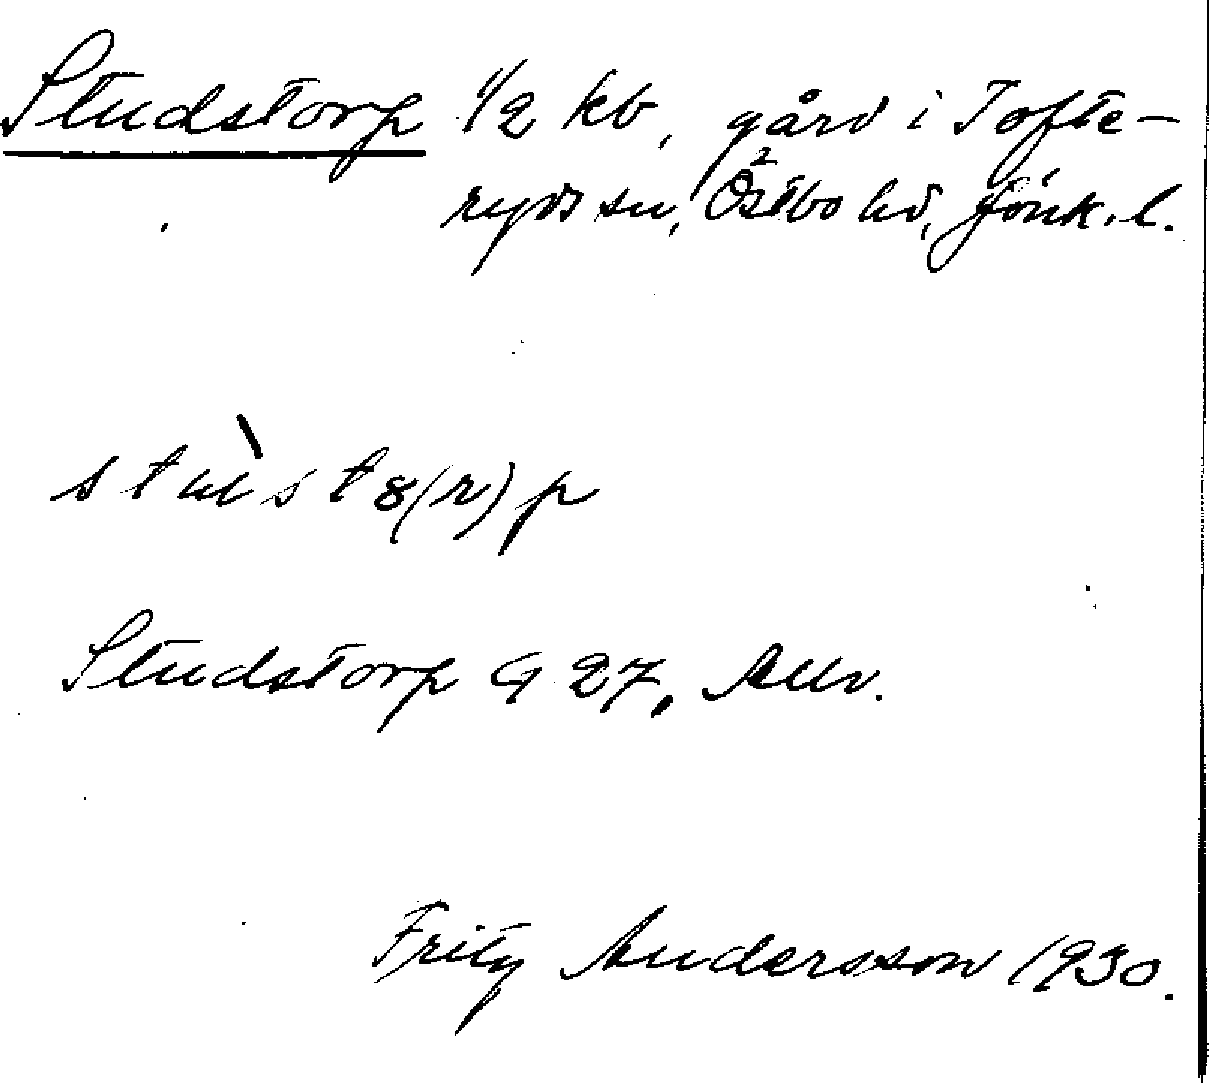 Studstorp 1/2 kb, gård i Tofte-
ryds sn, Östbo hd, Jönk. l.
stùst8(r)p
Studstorp G 27, Allv.
Fritz Andersson 1930.